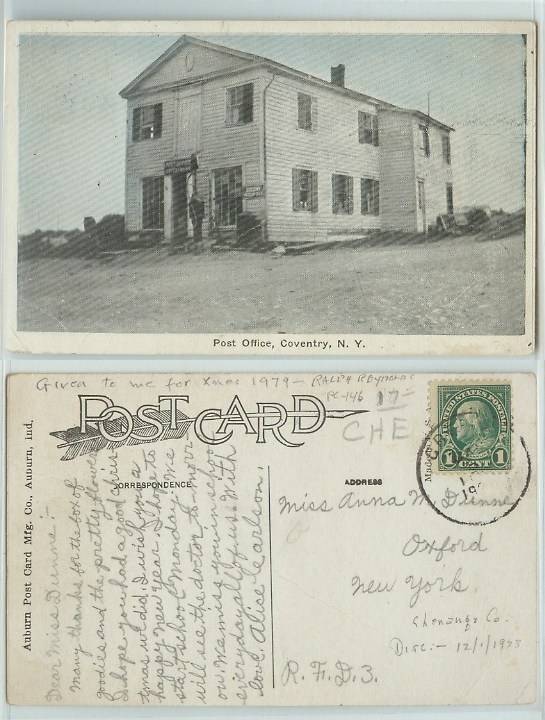 Post Office, Coventry, N. Y.
Given to me for Xmas 1979 - RALPH REYNOLDS
PC-146 17-
POST CARD
CHE
Made in U.S.A.
UNITED STATES POSTAGE
1 CENT 1
CORRESPONDENCE
ADDRESS
Auburn Post Card Mfg. Co., Auburn, Ind.
Dear Miss Dienne:-
Many thanks for the box of
goodies and the pretty flower
I hope you had a good Chris-
tmas we did. I wish you a
happy New Year. I hope to
start school Monday.
will see the doctor to-morr
ow. We miss you in school
everyday all of us. With
love, Alice Carlson.
Miss Anna M. Dienne
Oxford
New York.
Chenango Co.
Disc:-
R.F.D.3.